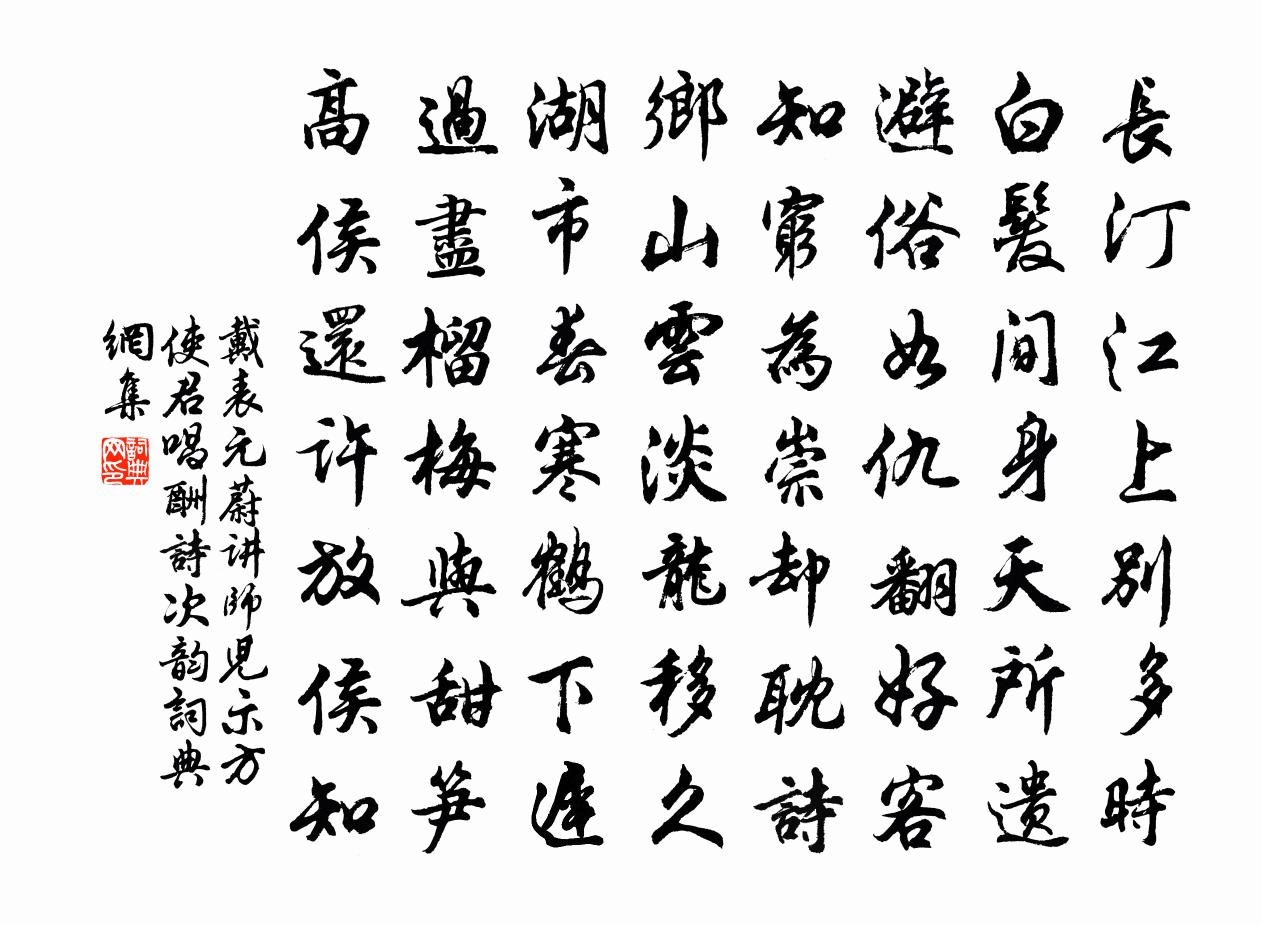 長汀江上別多時
白髮間身天所遺
避俗如仇翻好客
知窮為崇却耽詩
鄉山雲淡龍移久
湖市春寒鶴下遲
過盡榴梅與甜筍
高侯還許放侯知
戴表元蔚讲師見示方
使君唱酬詩次韵詞典
網集
詞典網印